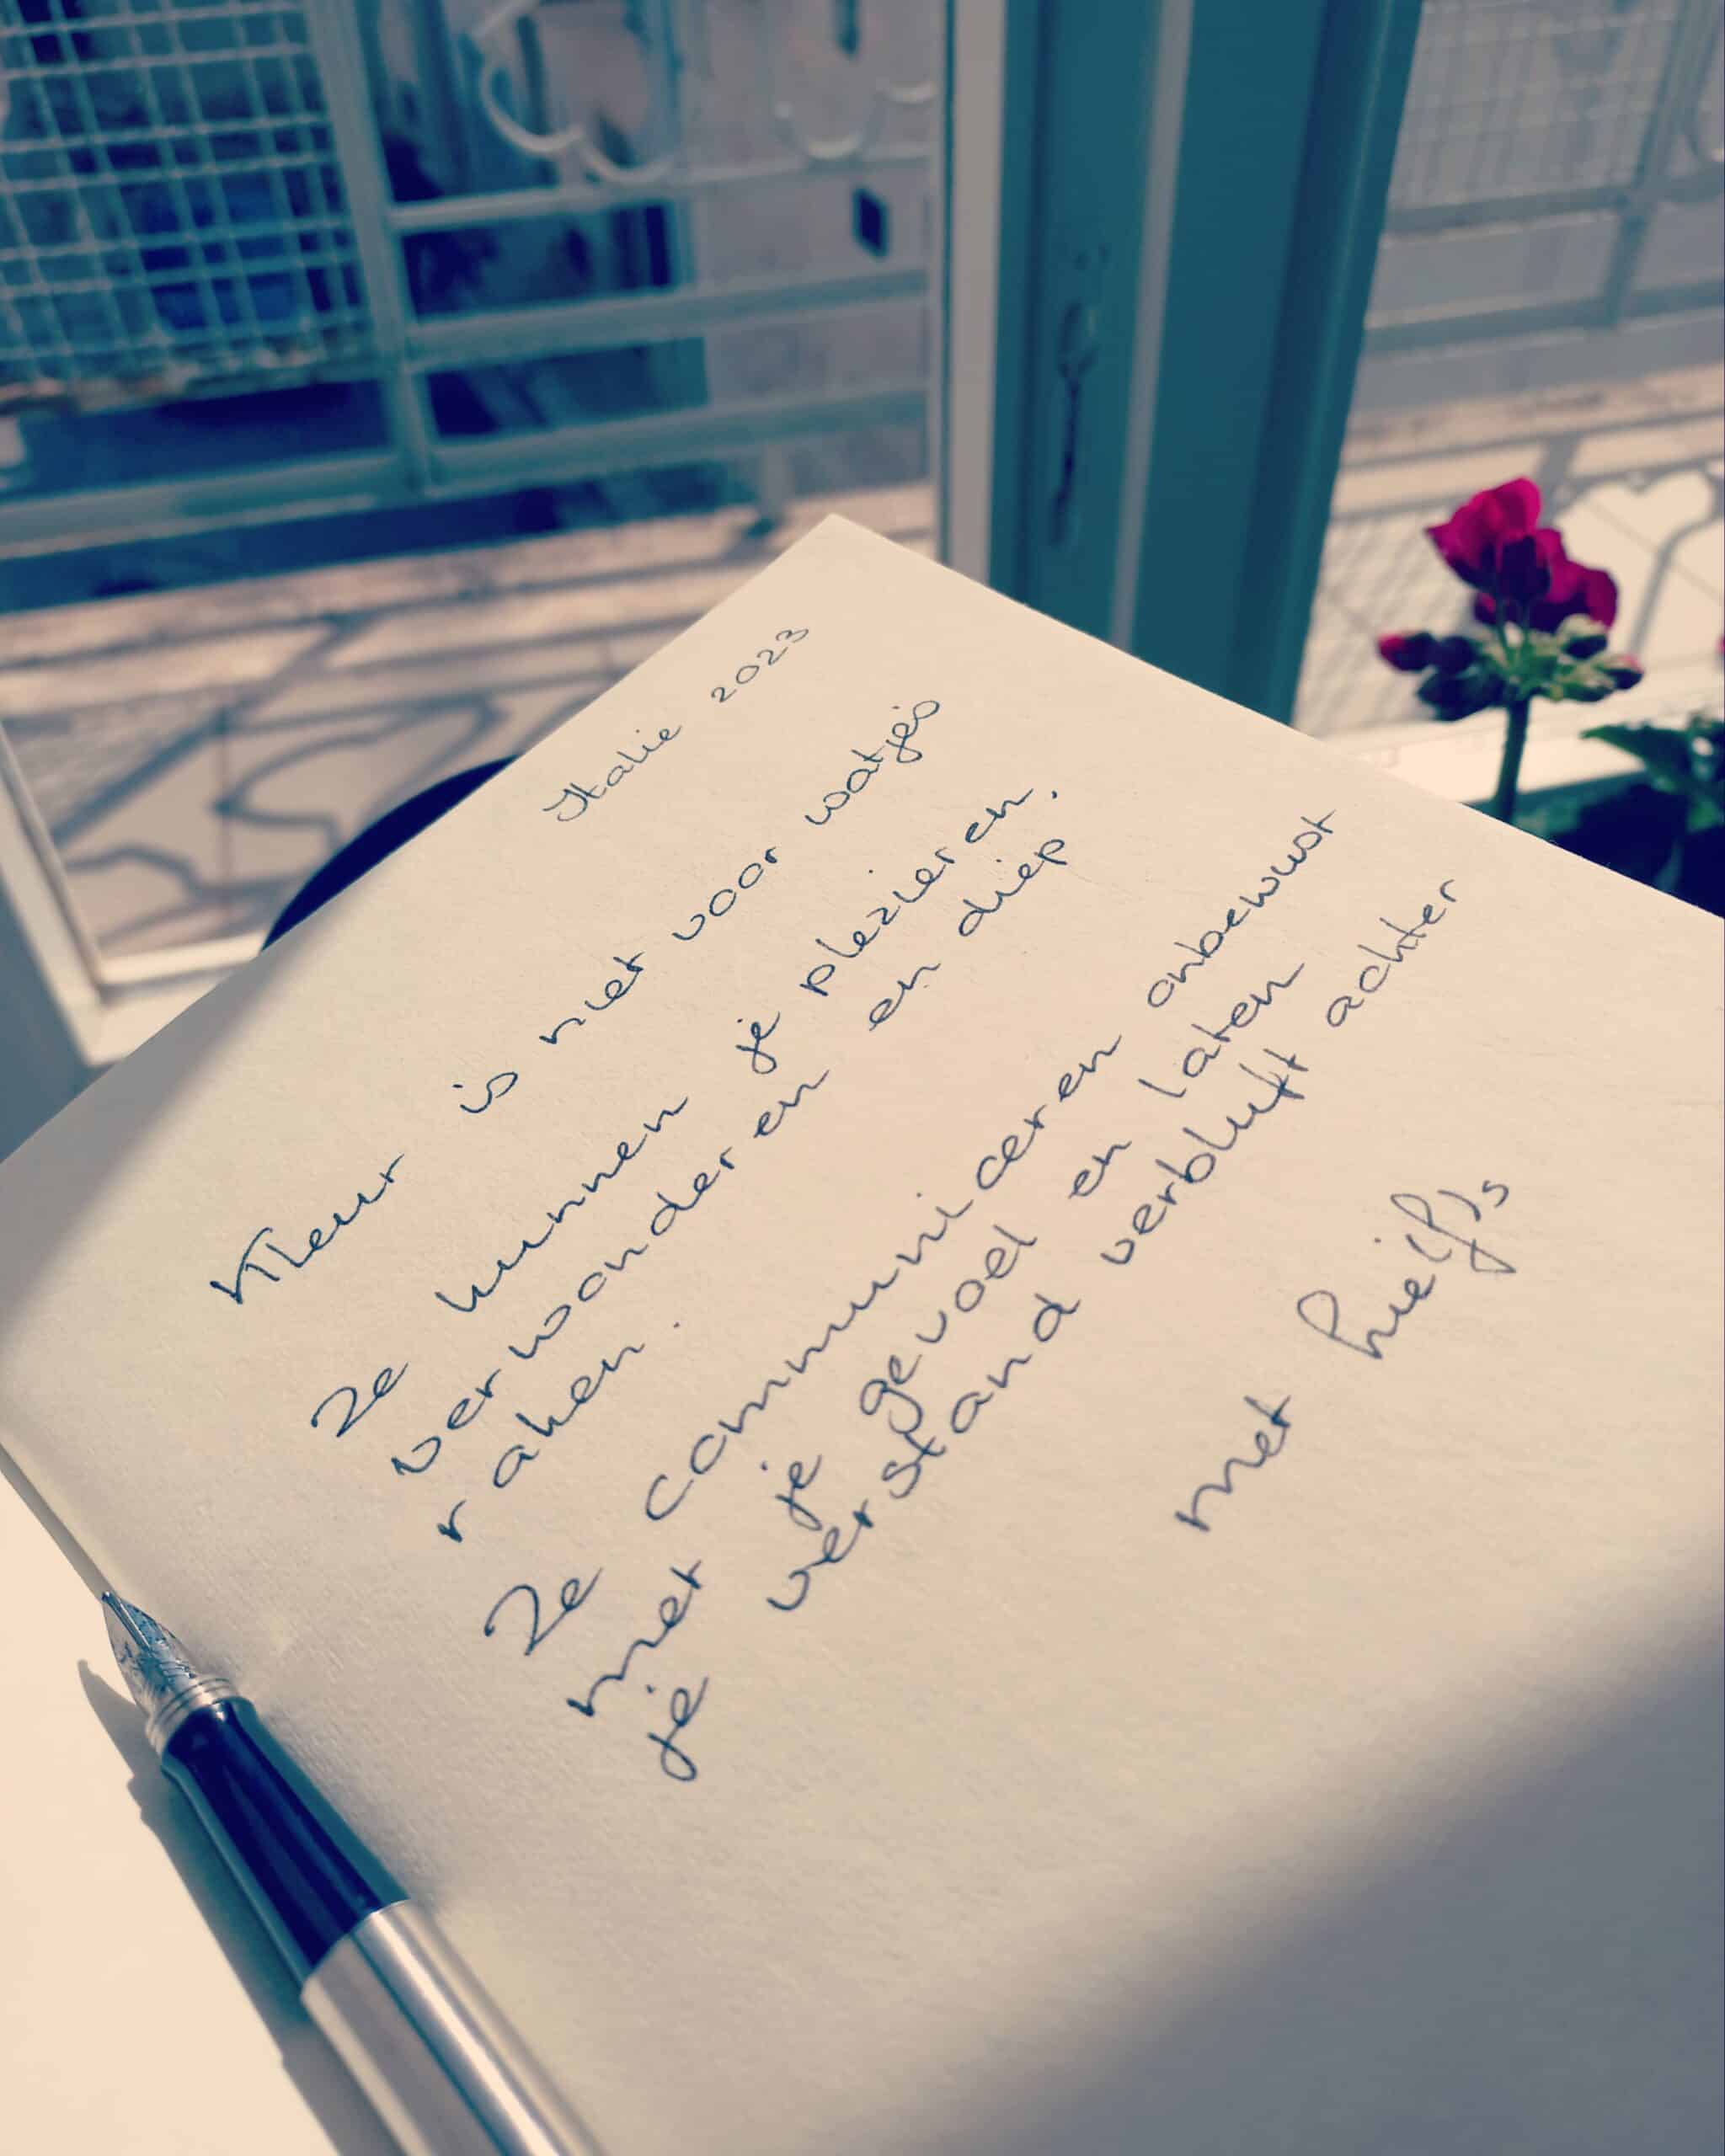 Italie 2023
Kleur is niet voor watjes
Ze kunnen je plezieren.
verwonderen en diep
raken.
Ze communiceren onbewust
met je gevoel en laten
je verstand verbluft achter
met liefs